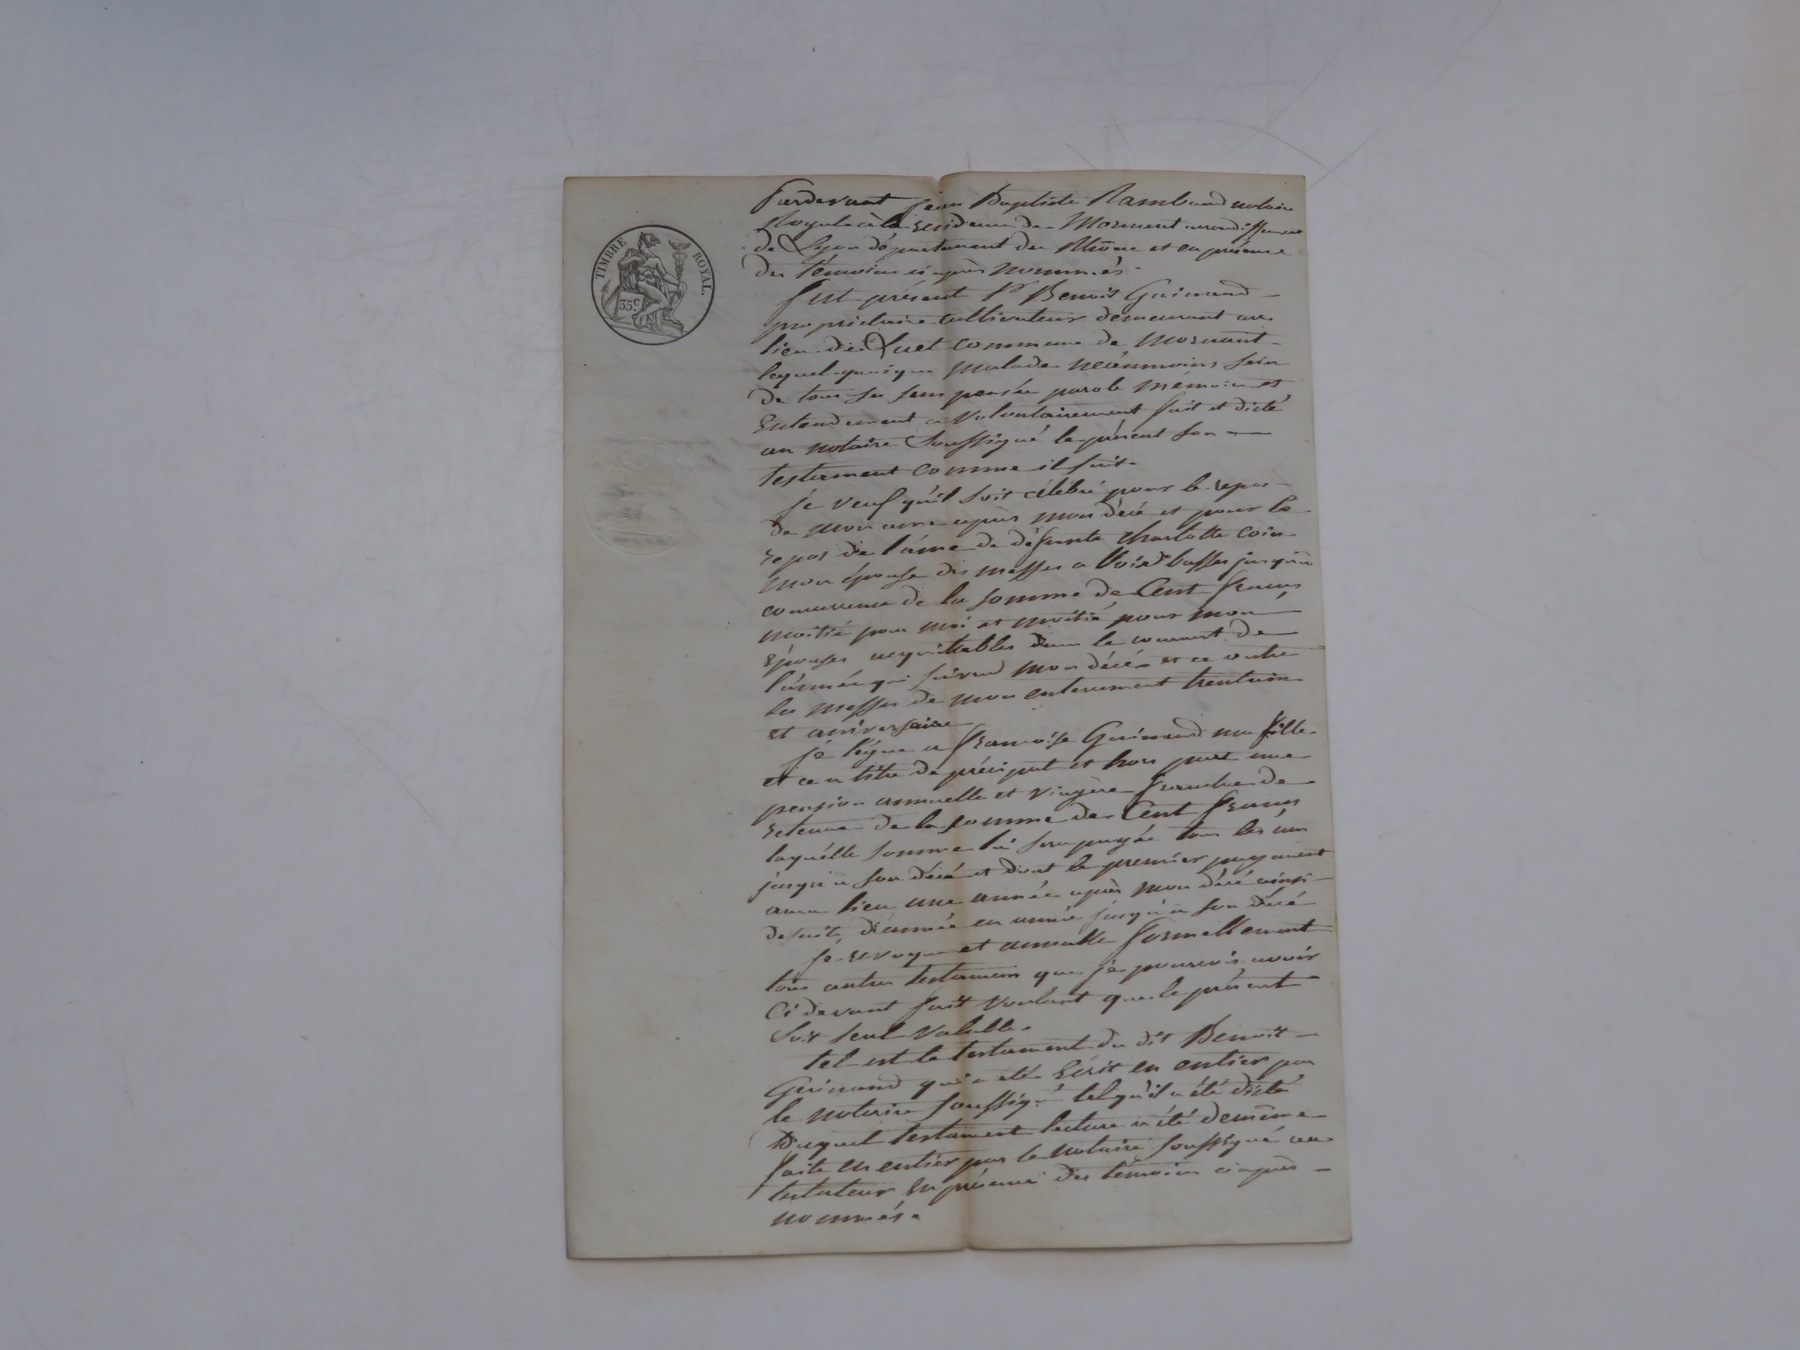 TIMBRE ROYAL.
35c
Pardevant Jean Baptiste Rambaud notaire
Royal à la Residence de Mornant arrondissement
de Lyon département du Rhône et en présence
des témoins ci après nommés.
fut présent Sr Benoit Guinand
propriétaire cultivateur demeurant au
lieu de commune de Mornant
lequel quoique malade néenmoins sein
de tous ses sens pensée parole mémoire et
Entendement a volontairement fait et dicté
au notaire soussigné le présent son
testament comme il suit.
je veux qu'il soit célébré pour le repos
de mon ame après mon décé et pour le
repos de l'âme de défunte charlotte
mon épouse des messes a voix basses jusqu'à
concurrence de la somme de Cent francs
moitié pour moi et moitié pour mon
épouse acquittables dans le courant de
l'année qui suivra mon décé et ce outre
les messes de mon enterrement trentain
et aniversaire
je légue a françoise Guinand ma fille
et ce a titre de préciput et hors part une
pension annuelle et viagère franche de
retenue de la somme de Cent francs
laquelle somme lui sera payée tous les ans
jusqu'a son décé et dont le premier payement
aura lieu une année après mon décé ainsi
de suite, d'année en année jusqu'a son décé
je revoque et annulle formellement
tous autres testamens que je pourrois avoir
Ci devant fait voulant que le présent
soit seul valable.
tel est le testament du dit Benoit
Guinand qui a été Ecrit en entier par
le notaire soussigné tel qu'il a été dicté
Duquel testament lecture a été de même
faite en entier par le notaire soussigné au
testateur En présence des témoins ci après
nommés.